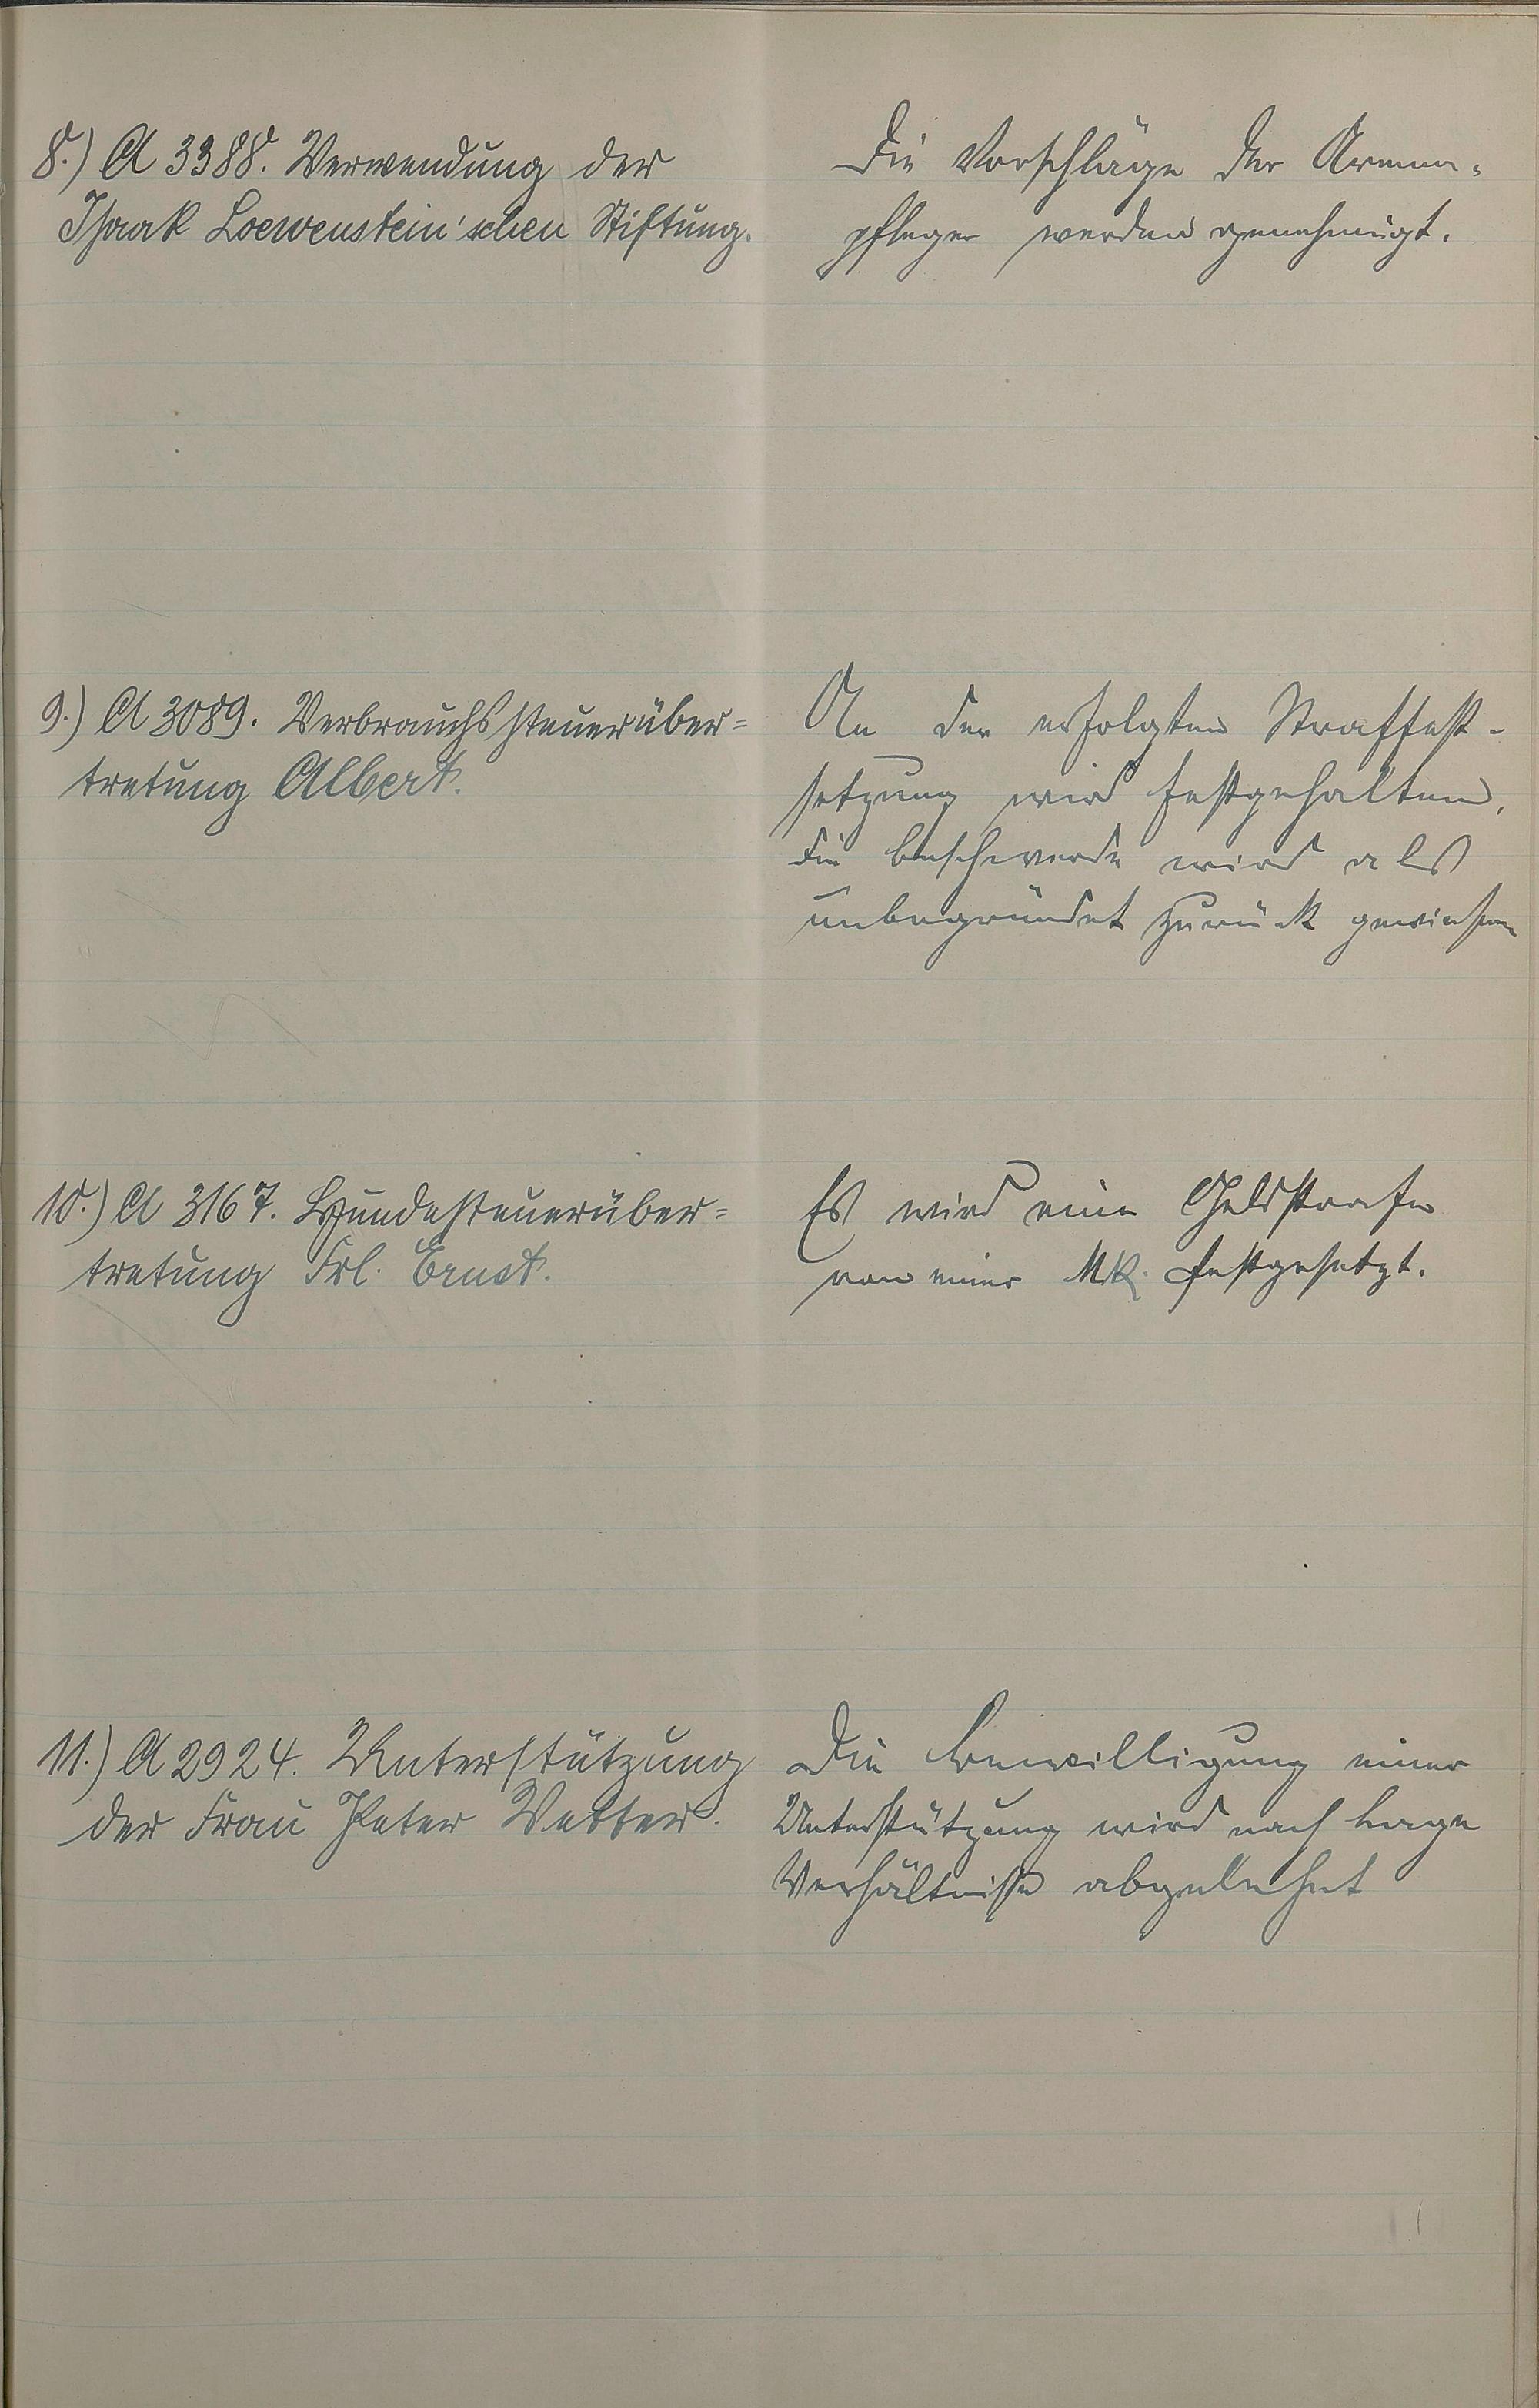 8.) A 3388. Verwendung der
Isaak Loewenstein'schen Stiftung.
Die Vorschläge der Armen-
pfleger werden genehmigt.
9.) A 3089. Verbrauchssteuerüber=
tretung Albert.
An der erfolgten Straffest-
setzung wird festgehalten,
die beschwerde wird als
unbegründet zurück gewiesen
10.) A 3167. Hundesteuerüber=
tretung Frl. Ernst.
Es wird eine Geldstrafe
von einer Mk. festgesetzt.
11.) A 2924. Unterstützung
der Frau Peter Vetter.
Die Bewilligung einer
Unterstützung wird nach Lage
Verhältnisse abgelehnt